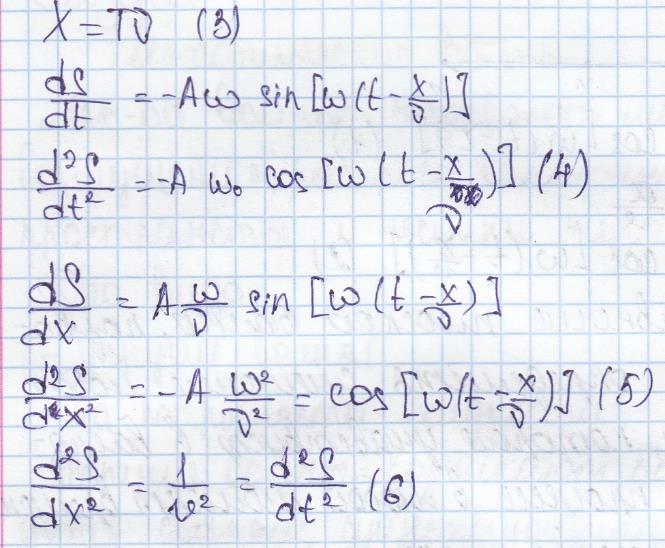 X = Tυ (3)
dS/dt = -Aω sin [ω(t - x/υ)]
d²S/dt² = -A ω₀ cos [ω(t - x/υ)] (4)
dS/dx = A ω/υ sin [ω(t - x/υ)]
d²S/dx² = -A ω²/υ² = cos [ω(t - x/υ)] (5)
d²S/dx² = 1/υ² = d²S/dt² (6)